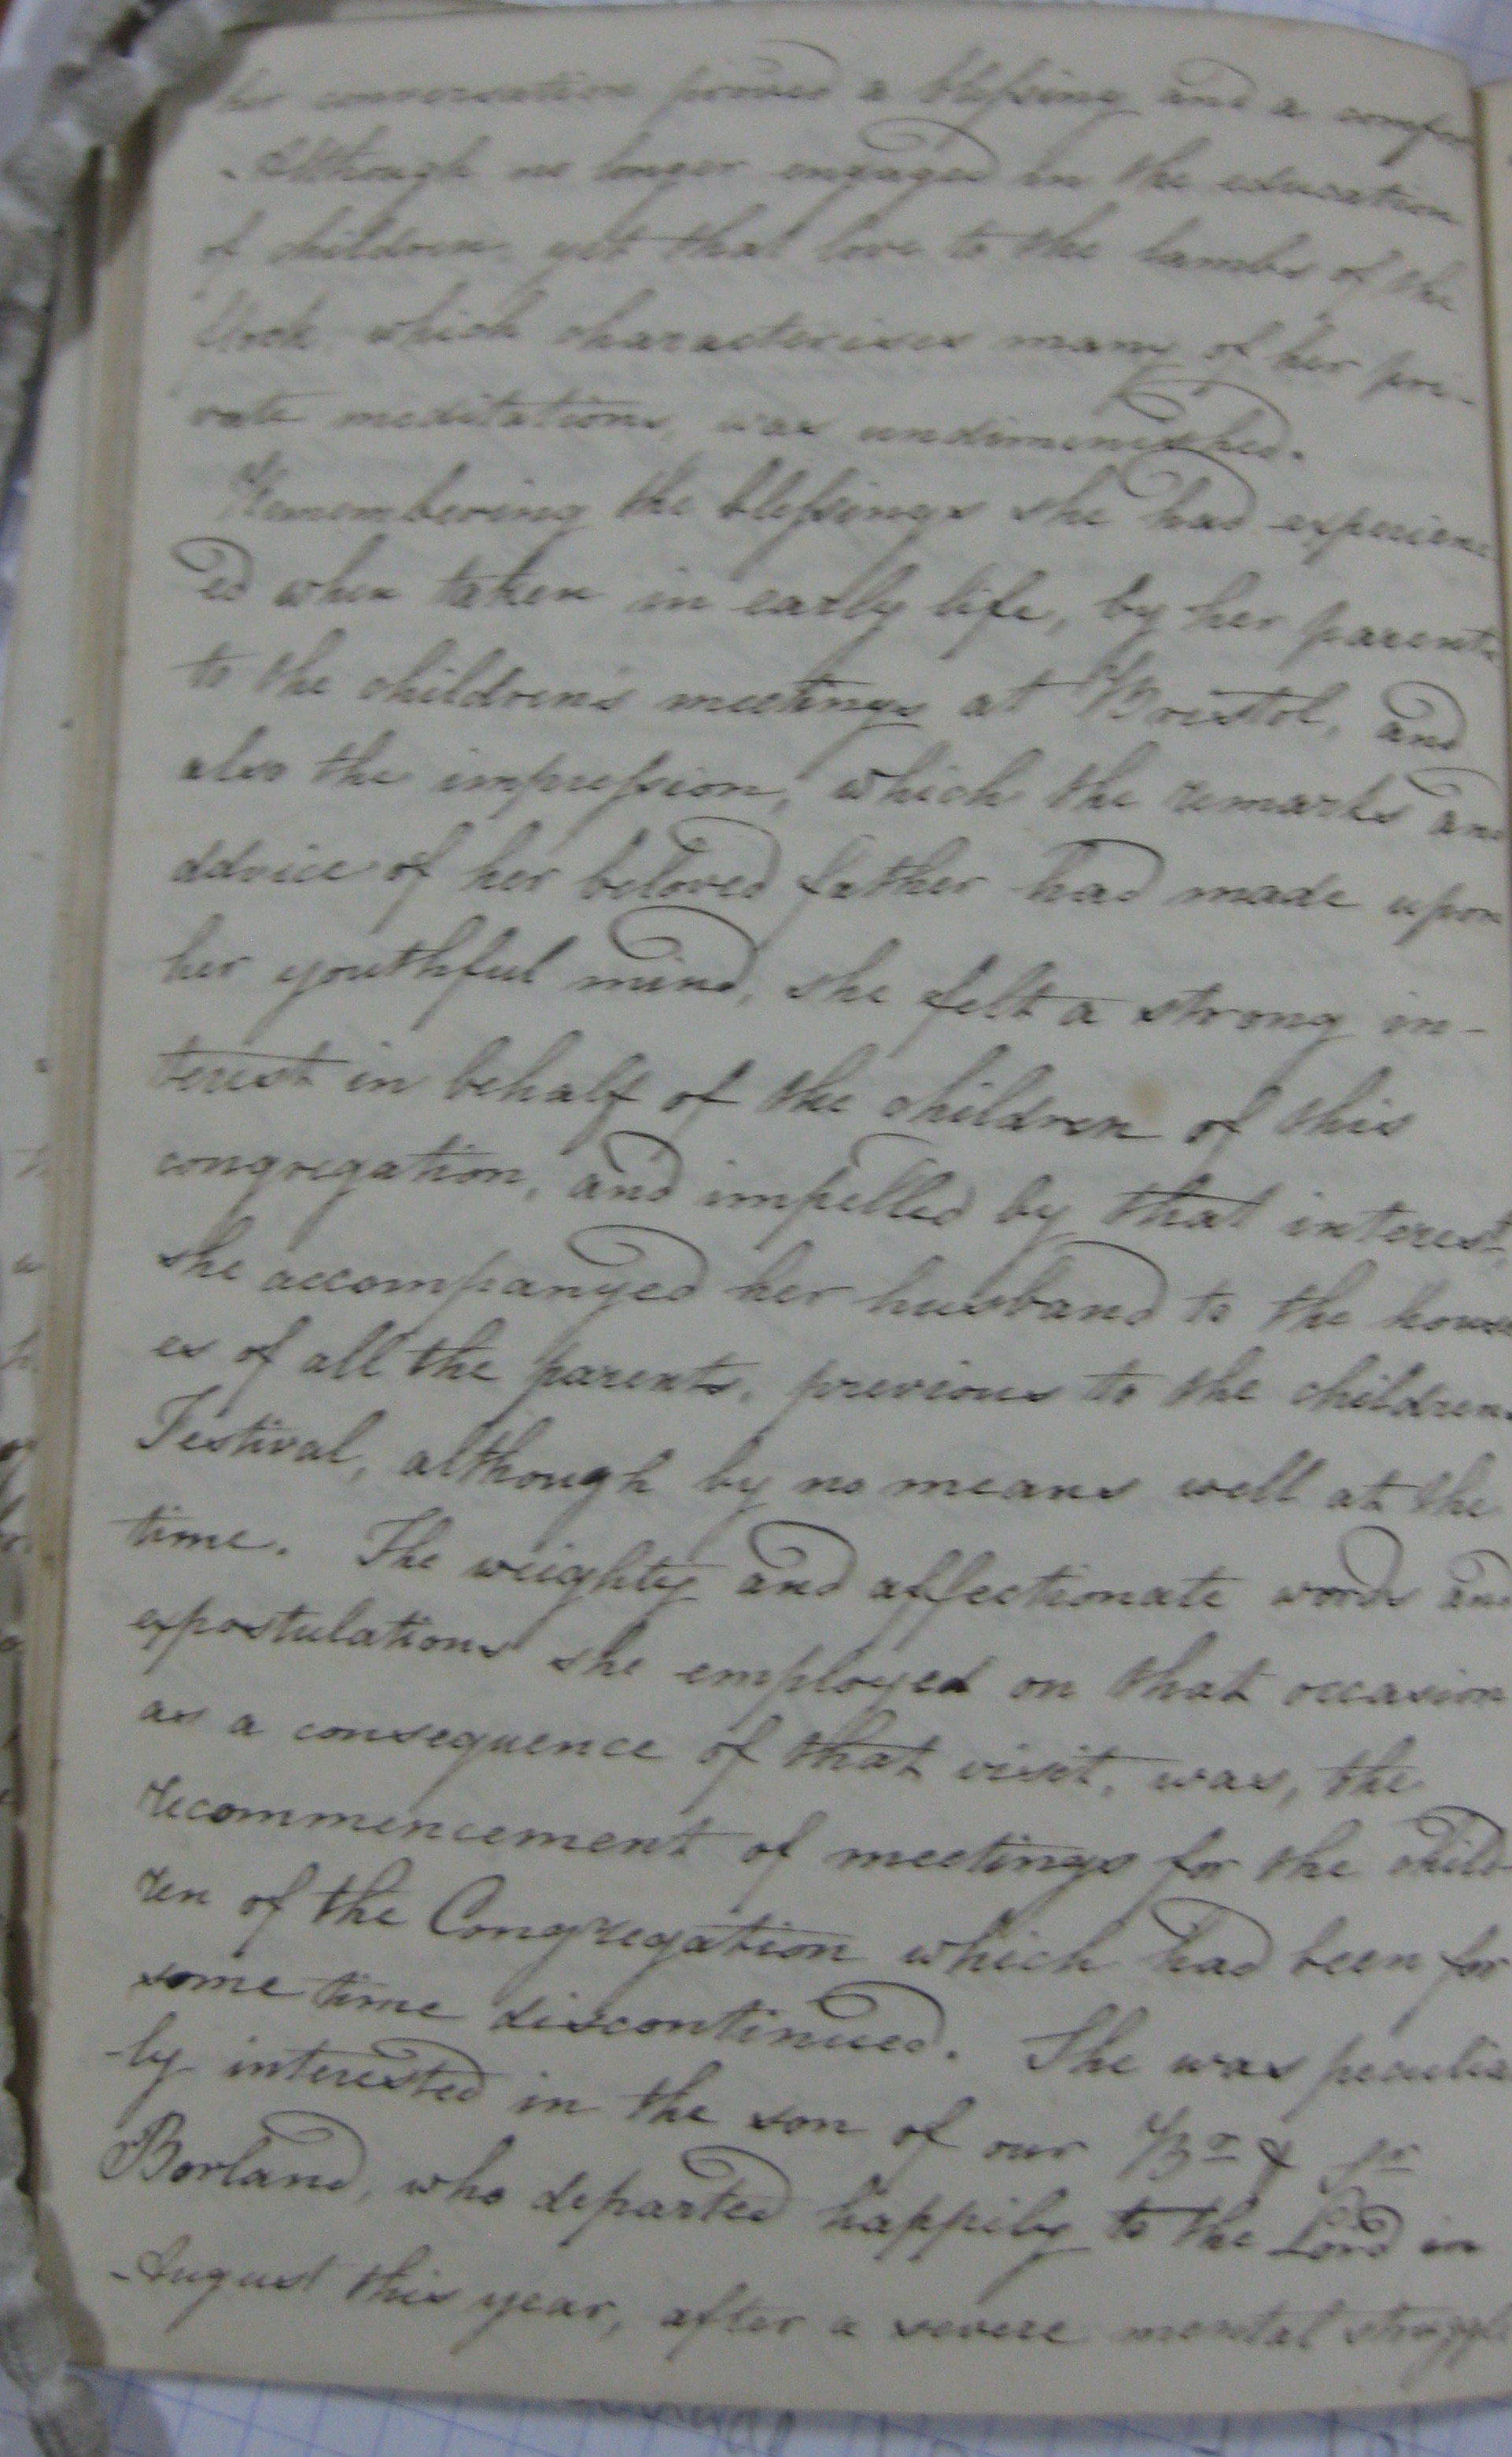 her conversation proved a blessing and a comfort
Although no longer engaged in the education
of children, yet that love to the lambs of the
flock, which characterises many of her pri-
vate meditations, was undiminished.
Remembering the blessings she had experienc
ed when taken in early life, by her parents
to the children's meetings at Bristol, and
also the impression, which the remarks and
advice of her beloved father had made upon
her youthful mind, she felt a strong in-
terest in behalf of the children of this
congregation, and impelled by that interest,
she accompanyed her husband to the hous
es of all the parents, previous to the childrens
Festival, although by no means well at the
time. The weighty and affectionate words and
expostulations she employed on that occasion
as a consequence of that visit, was, the
recommencement of meetings for the child-
ren of the Congregation which had been for
some time discontinued. She was peculiar
-ly interested in the son of our Br & Sr
Borland, who departed happily to the Lord in
August this year, after a severe mental struggle